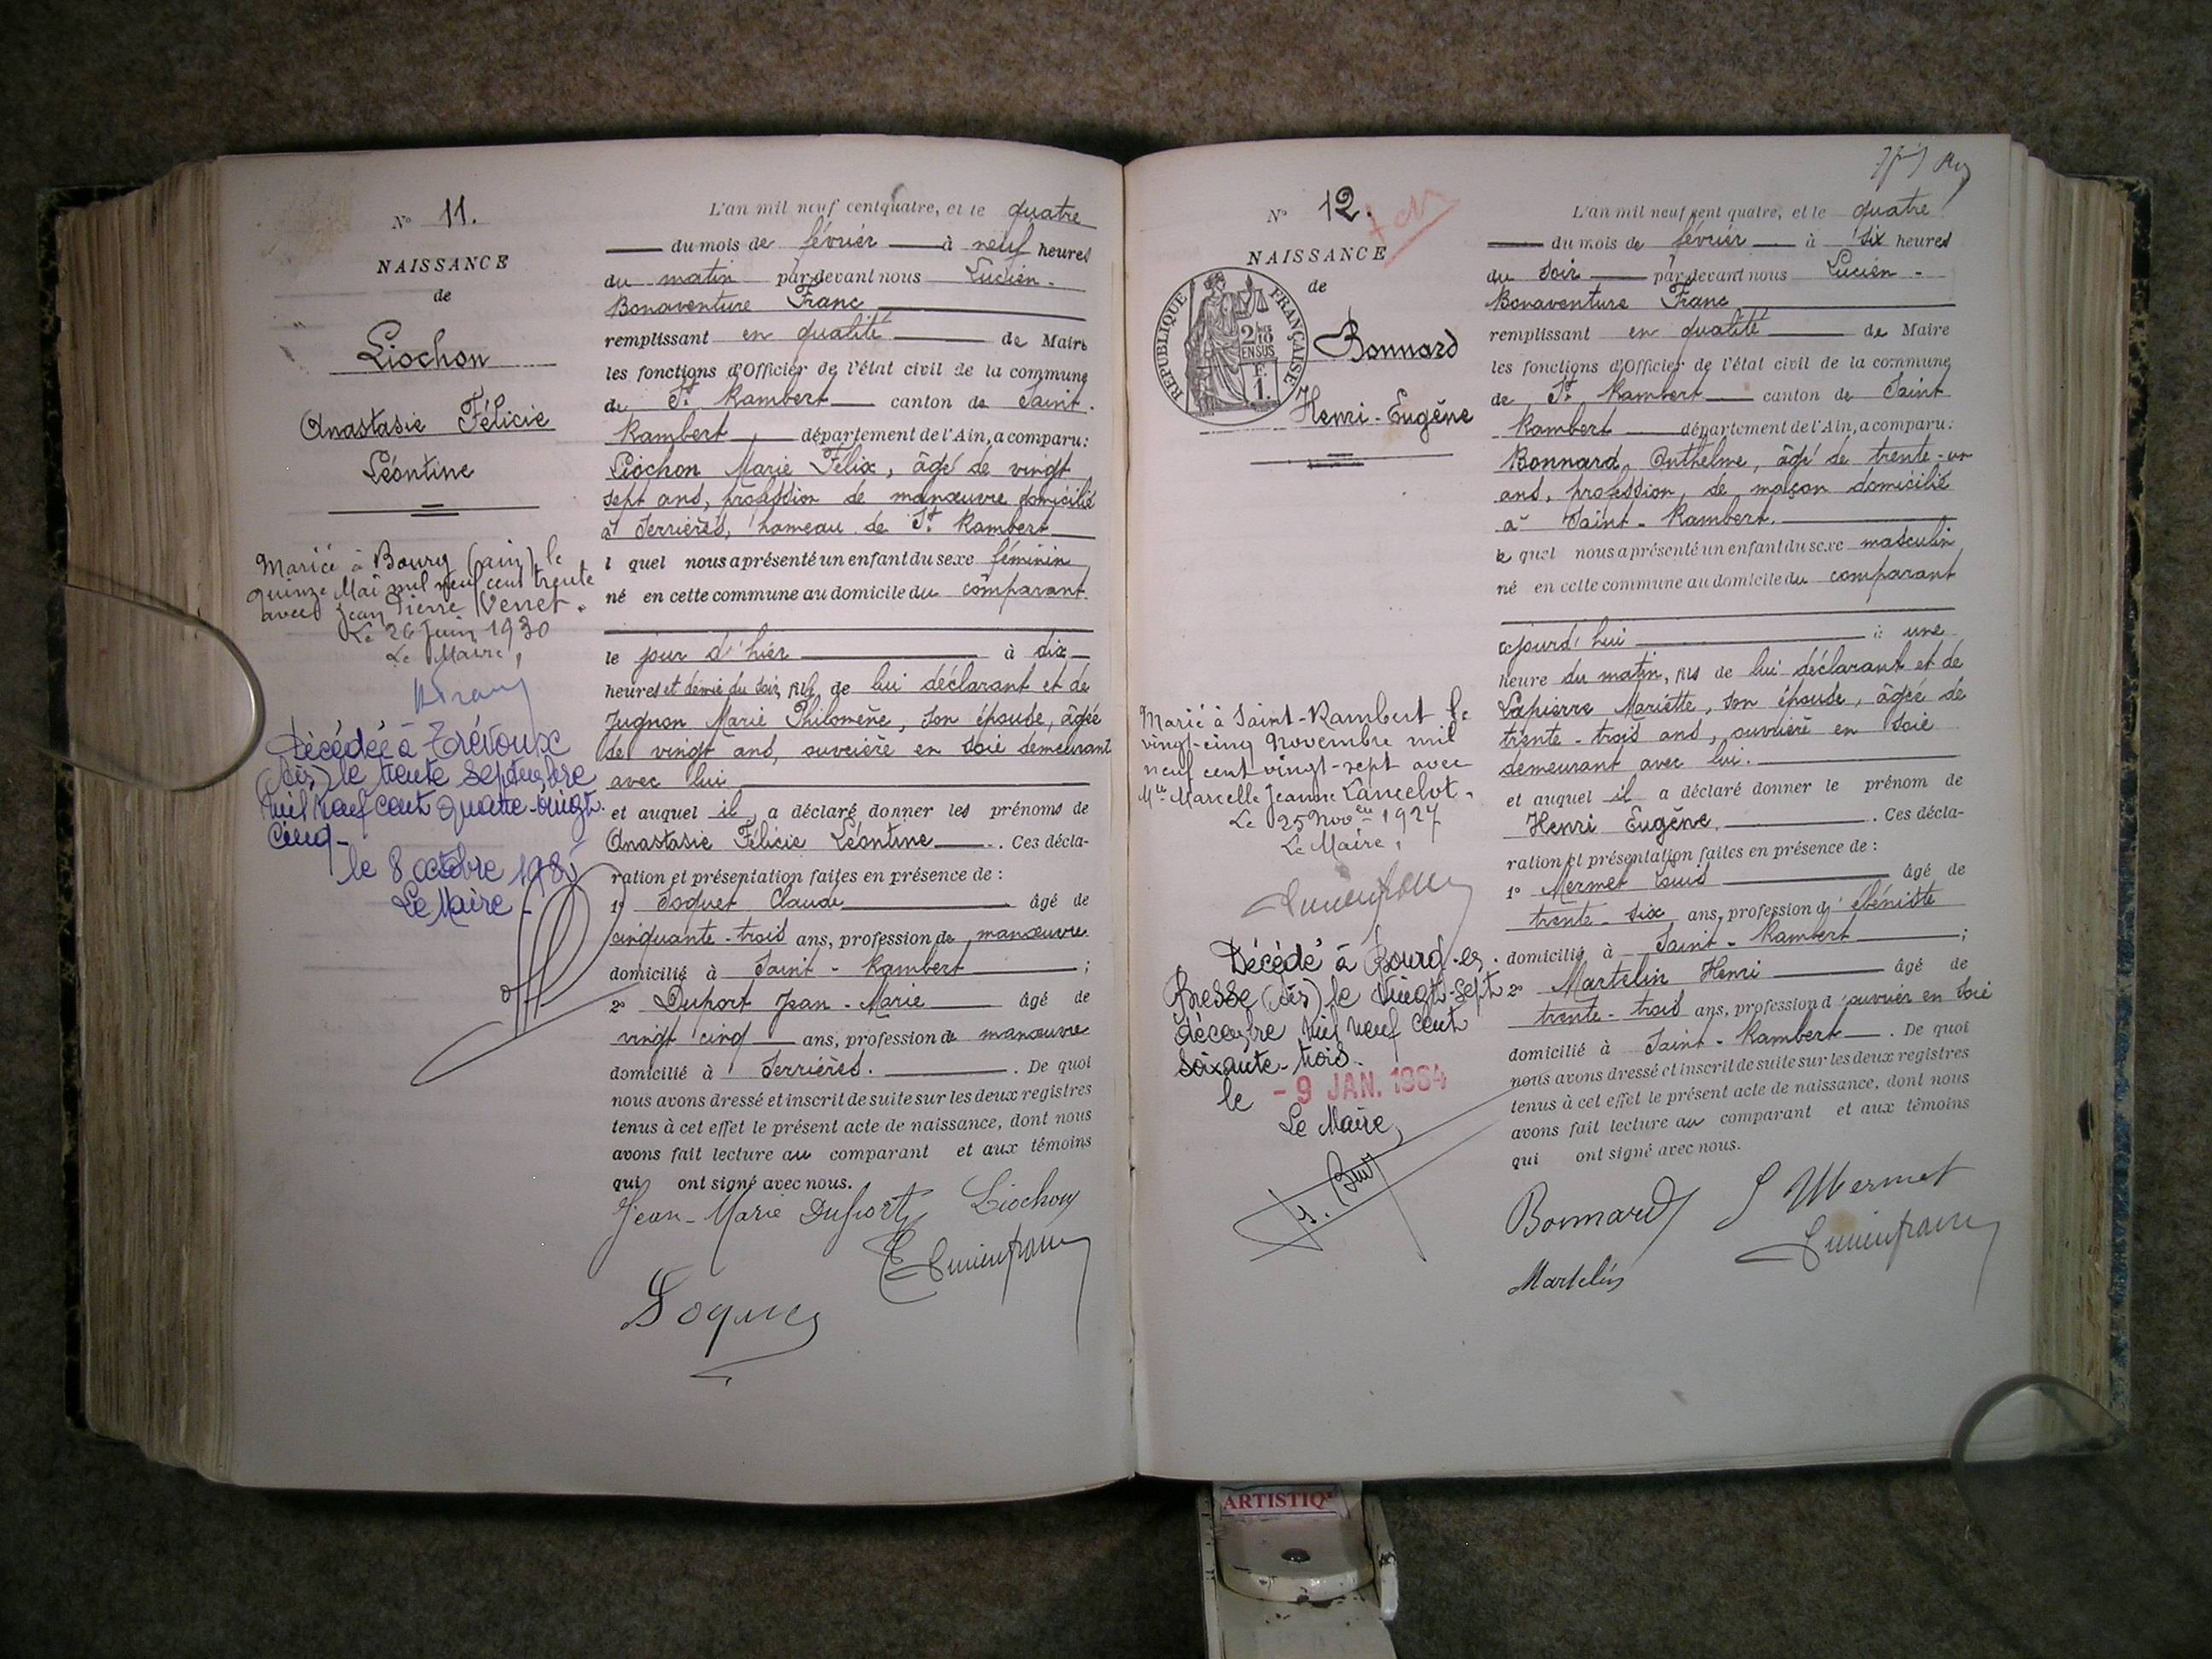 N° 11.
NAISSANCE
de
Liochon
Anastasie Félicie
Léontine
Marié à Bourg (ain) le
quinze Mai mil neuf cent trente
avec Jean Pierre Verret.
Le 26 Juin 1930
Le Maire,
Décédée à Trévoux
(Ain) le trente septembre
mil neuf cent quatre-vingt
cinq.
le 8 octobre 1985
Le Maire
L'an mil neuf cent quatre, et le quatre
du mois de février à neuf heures
du matin par devant nous Lucien-
Bonaventure Franc
remplissant en qualité de Maire
les fonctions d'Officier de l'état civil de la commune
de St Rambert canton de Saint-
Rambert département de l'Ain, a comparu:
Liochon Marie Félix, âgé de vingt
sept ans, profession de manœuvre domicilié
à Serrières, hameau de St Rambert
l quel nous a présenté un enfant du sexe féminin
né en cette commune au domicile du comparant
le jour d'hier à dix
heures et demie du soir, fils de lui déclarant et de
Jugnon Marie Philomène, son épouse, âgée
de vingt ans, ouvrière en soie demeurant
avec lui
et auquel il a déclaré donner les prénoms de
Anastasie Félicie Léontine. Ces décla-
ration et présentation faites en présence de :
1° Soquet Claude âgé de
cinquante-trois ans, profession de manœuvre
domicilié à Saint-Rambert ;
2° Duport Jean-Marie âgé de
vingt cinq ans, profession de manœuvre
domicilié à Serrières. . De quoi
nous avons dressé et inscrit de suite sur les deux registres
tenus à cet effet le présent acte de naissance, dont nous
avons fait lecture au comparant et aux témoins
qui ont signé avec nous.
Jean-Marie Duport Liochon
Lucien franc
Soquet
N° 12.
NAISSANCE
de
RÉPUBLIQUE FRANÇAISE
2/10
EN SUS
F.
1.
Bonnard
Henri-Eugène
Marié à Saint-Rambert le
vingt-cinq Novembre mil
neuf cent vingt-sept avec
Mlle Marcelle Jeanne Lancelot.
Le 25 Nov 1927
Le Maire,
Lucien franc
Décédé à Bourg-en-
Bresse (Ain) le vingt-sept
décembre mil neuf cent
soixante-trois.
le - 9 JAN. 1964
Le Maire,
L'an mil neuf cent quatre, et le quatre
du mois de février à six heures
du soir par devant nous Lucien-
Bonaventure Franc
remplissant en qualité de Maire
les fonctions d'Officier de l'état civil de la commune
de St Rambert canton de Saint
Rambert département de l'Ain, a comparu:
Bonnard Anthelme, âgé de trente-un
ans, profession de maçon domicilié
à Saint-Rambert.
le quel nous a présenté un enfant du sexe masculin
né en cette commune au domicile du comparant
ajourd'hui à une
heure du matin, fils de lui déclarant et de
Lapierre Mariette, son épouse, âgée de
trente-trois ans, ouvrière en soie
demeurant avec lui.
et auquel il a déclaré donner le prénom de
Henri Eugène. . Ces décla-
ration et présentation faites en présence de :
1° Mermet Louis âgé de
trente-six ans, profession d'ébéniste
domicilié à Saint-Rambert ;
2° Martelin Henri âgé de
trente-trois ans, profession d'ouvrier en soie
domicilié à Saint-Rambert. De quoi
nous avons dressé et inscrit de suite sur les deux registres
tenus à cet effet le présent acte de naissance, dont nous
avons fait lecture au comparant et aux témoins
qui ont signé avec nous.
Bonnard L Mermet
Lucien franc
Martelin
ARTISTIQ